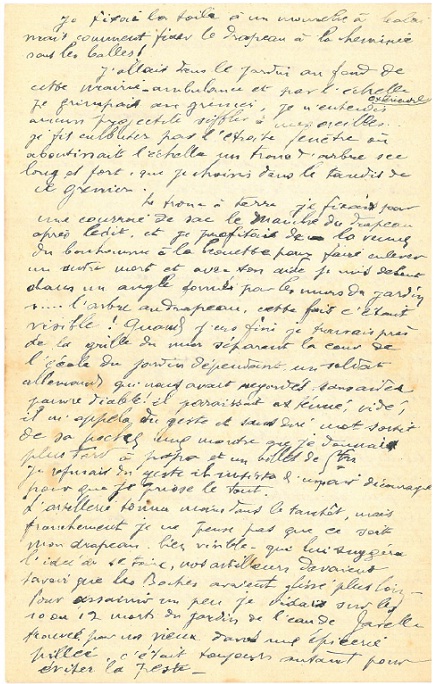 Je fixai la toile à un manche à balai
mais comment fixer le drapeau à la cheminée
sous les balles !
J'allais dans le jardin au fond de
cette mairie-ambulance et par l'échelle
extérieure
je grimpais au grenier, je n'entendis
aucun projectile siffler à mes oreilles.
je fis culbuter par l'étroite fenêtre où
aboutissait l'échelle un tronc d'arbre sec
long et fort, que je choisis dans le taudis de
ce grenier.
Le tronc à terre je fixais par
une courroie de sac le manche du drapeau
après ledit, et je profitais de la venue
du bonhomme à la brouette pour faire enlever
un autre mort et avec son aide je mis debout
dans un angle formé par les murs du jardin
l'arbre au drapeau, cette fois c'était
visible ! Quand j'eus fini je trouvais près
de la grille du mur séparant la cour de
l'école du jardin dépendant, un soldat
allemand qui nous avait regardés sans aider
pauvre diable il paraissait exténué, vidé,
il m'appela du geste et sans dire mot sortit
de sa poche une montre que je donnais
plus tard à et un billet de 5 frs
je refusais du geste il insista d'un air découragé
pour que je prisse le tout.
L'artillerie tonna moins dans le tantôt, mais
franchement je ne pense pas que ce soit
mon drapeau bien visible qui lui suggéra
l'idée de se taire, nos artilleurs devaient
savoir que les Boches avaient filé plus loin -
Pour assainir un peu je vidais sur les
10 ou 12 morts du jardin de l'eau de Javelle
trouvée par nos vieux dans une épicerie
pillée, c'était toujours autant pour
éviter la peste -